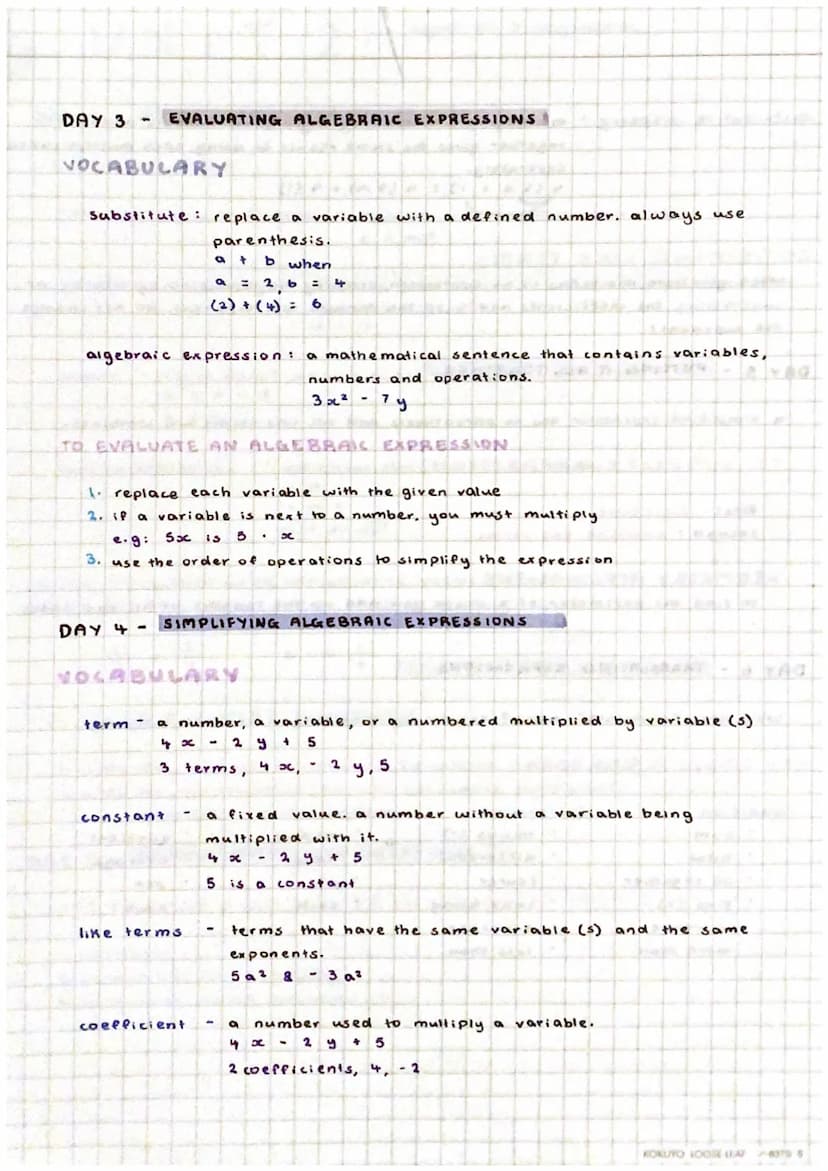 DAY 3 - EVALUATING ALGEBRAIC EXPRESSIONS
VOCABULARY
substitute: replace a variable with a defined number. always use
parenthesis.
a + b when
a = 2, b = 4
(2) + (4) = 6
algebraic expression: a mathematical sentence that contains variables,
numbers and operations.
3x² - 7y
TO EVALUATE AN ALGEBRAIC EXPRESSION
1. replace each variable with the given value
2. if a variable is next to a number, you must multiply
e.g: 5x is 5 · x
3. use the order of operations to simplify the expression
DAY 4 - SIMPLIFYING ALGEBRAIC EXPRESSIONS
VOCABULARY
term - a number, a variable, or a numbered multiplied by variable (s)
4x - 2y + 5
3 terms, 4x, - 2y, 5
constant - a fixed value. a number without a variable being
multiplied with it.
4x - 2y + 5
5 is a constant
like terms - terms that have the same variable (s) and the same
exponents.
5a² & - 3a²
coefficient - a number used to multiply a variable.
4x - 2y + 5
2 coefficients, 4, -2
KOKUYO LOOSE LEAF